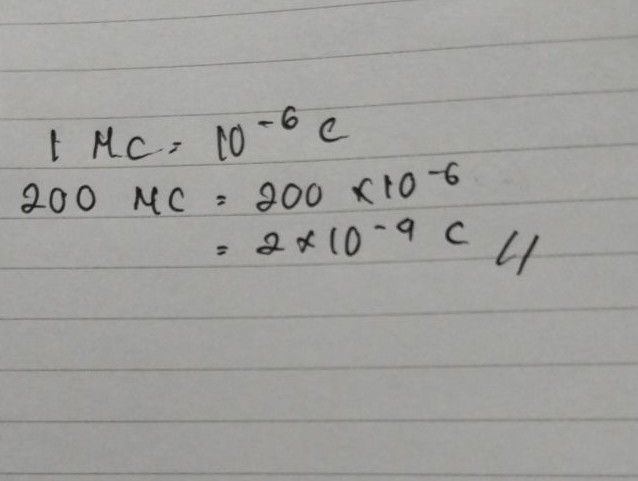 1 μC = 10⁻⁶ C
200 μC = 200 × 10⁻⁶
= 2 × 10⁻⁹ C //